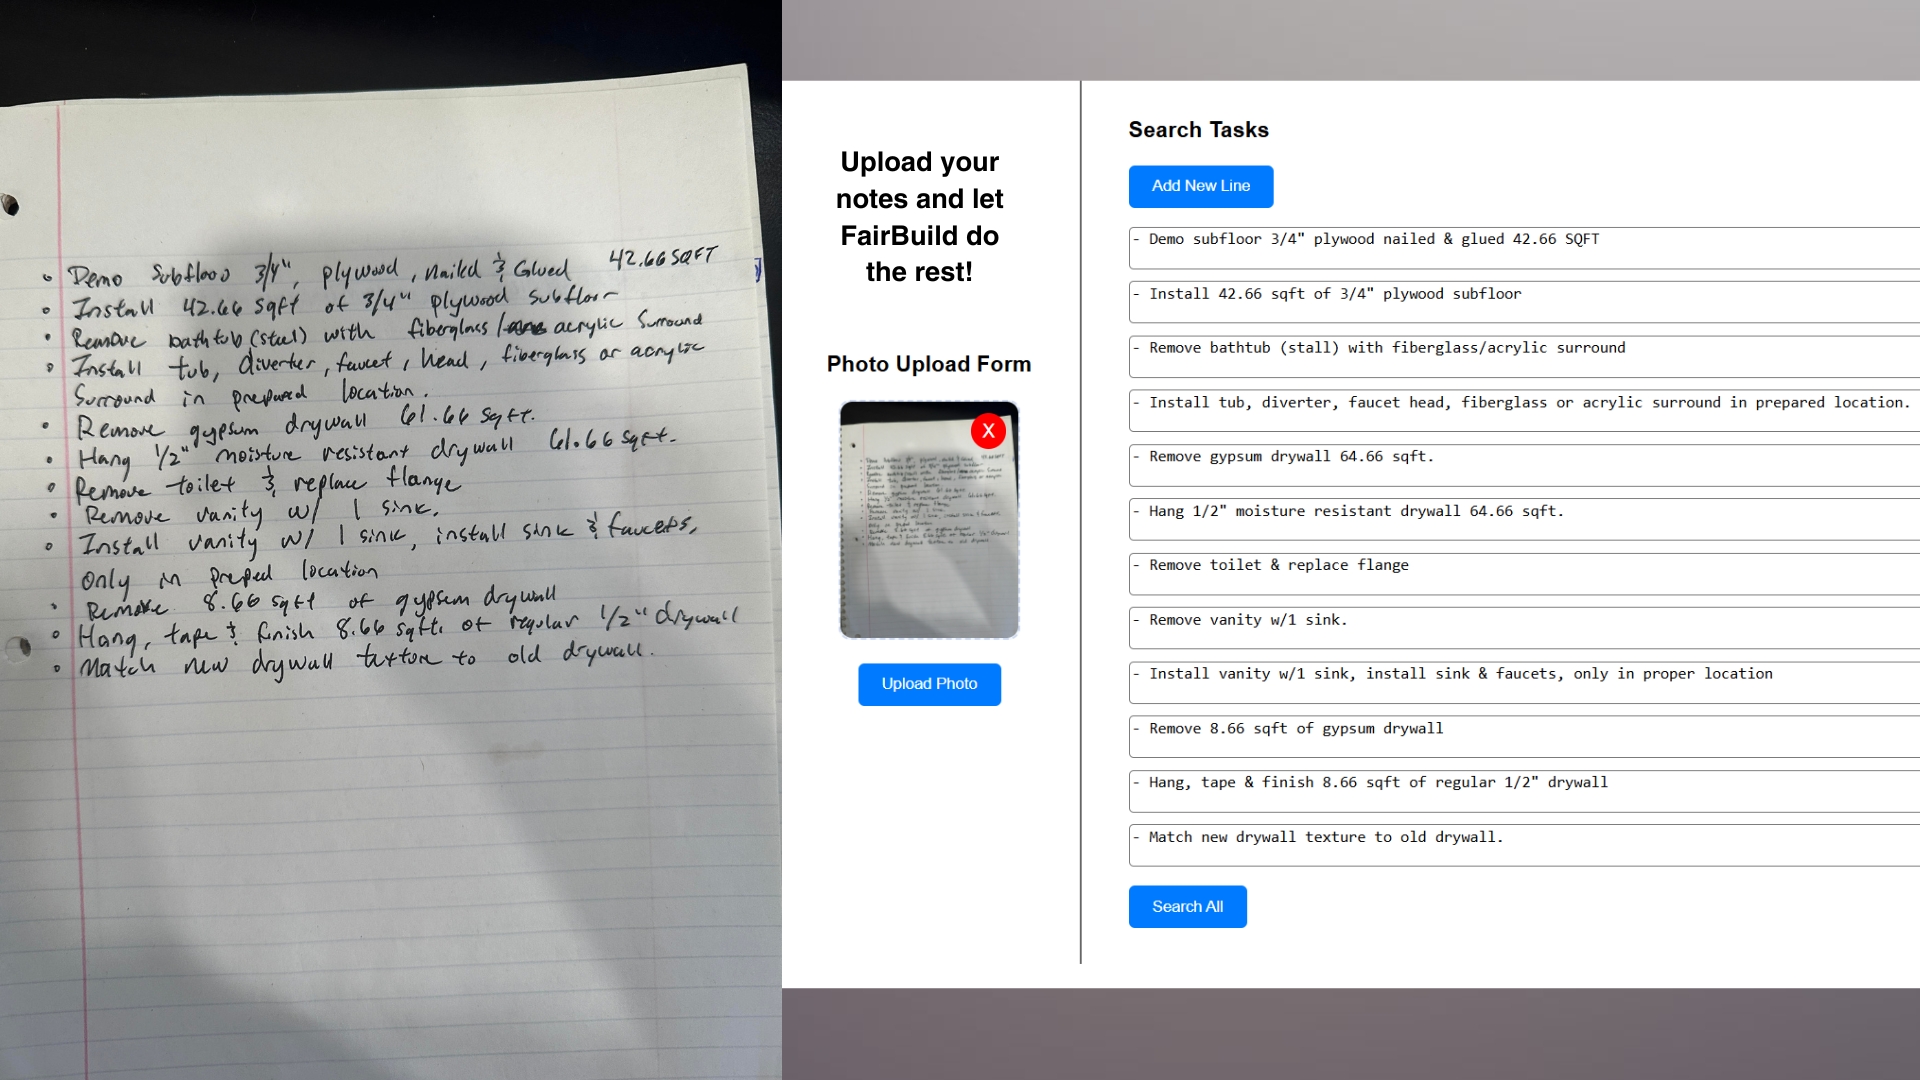 • Demo Subfloor 3/4", plywood, nailed & Glued 42.66 SQFT
• Install 42.66 sqft of 3/4" plywood subfloor
• Remove bathtub (steel) with fiberglass / acrylic Surround
• Install tub, diverter, faucet, head, fiberglass or acrylic
Surround in prepared location.
• Remove gypsum drywall 61.66 sqft.
• Hang 1/2" moisture resistant drywall 61.66 sqft.
• Remove toilet & replace flange
• Remove vanity w/ 1 sink.
• Install vanity w/ 1 sink, install sink & faucets,
only in preped location
• Remove 8.66 sqft of gypsum drywall
• Hang, tape & finish 8.66 sqft. of regular 1/2" drywall
• Match new drywall texture to old drywall.
Upload your
notes and let
FairBuild do
the rest!
Photo Upload Form
X
Upload Photo
Search Tasks
Add New Line
- Demo subfloor 3/4" plywood nailed & glued 42.66 SQFT
- Install 42.66 sqft of 3/4" plywood subfloor
- Remove bathtub (stall) with fiberglass/acrylic surround
- Install tub, diverter, faucet head, fiberglass or acrylic surround in prepared location.
- Remove gypsum drywall 64.66 sqft.
- Hang 1/2" moisture resistant drywall 64.66 sqft.
- Remove toilet & replace flange
- Remove vanity w/1 sink.
- Install vanity w/1 sink, install sink & faucets, only in proper location
- Remove 8.66 sqft of gypsum drywall
- Hang, tape & finish 8.66 sqft of regular 1/2" drywall
- Match new drywall texture to old drywall.
Search All